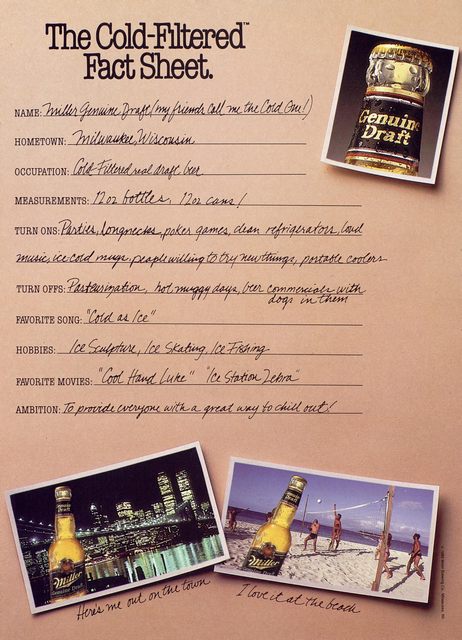 The Cold-Filtered™
Fact Sheet.
NAME: Miller Genuine Draft (my friends call me the Cold One!)
HOMETOWN: Milwaukee, Wisconsin
OCCUPATION: Cold-Filtered real draft beer
MEASUREMENTS: 12oz bottles, 12oz cans!
TURN ONS: Parties, longnecks, poker games, clean refrigerators, loud
music, ice cold mugs, people willing to try new things, portable coolers
TURN OFFS: Pasteurization, hot muggy days, beer commercials with
dogs in them
FAVORITE SONG: "Cold as Ice"
HOBBIES: Ice Sculpture, Ice Skating, Ice Fishing
FAVORITE MOVIES: "Cool Hand Luke" "Ice Station Zebra"
AMBITION: To provide everyone with a great way to chill out!
Genuine
Draft
Miller
Genuine Draft
Miller
Here's me out on the town
I love it at the beach